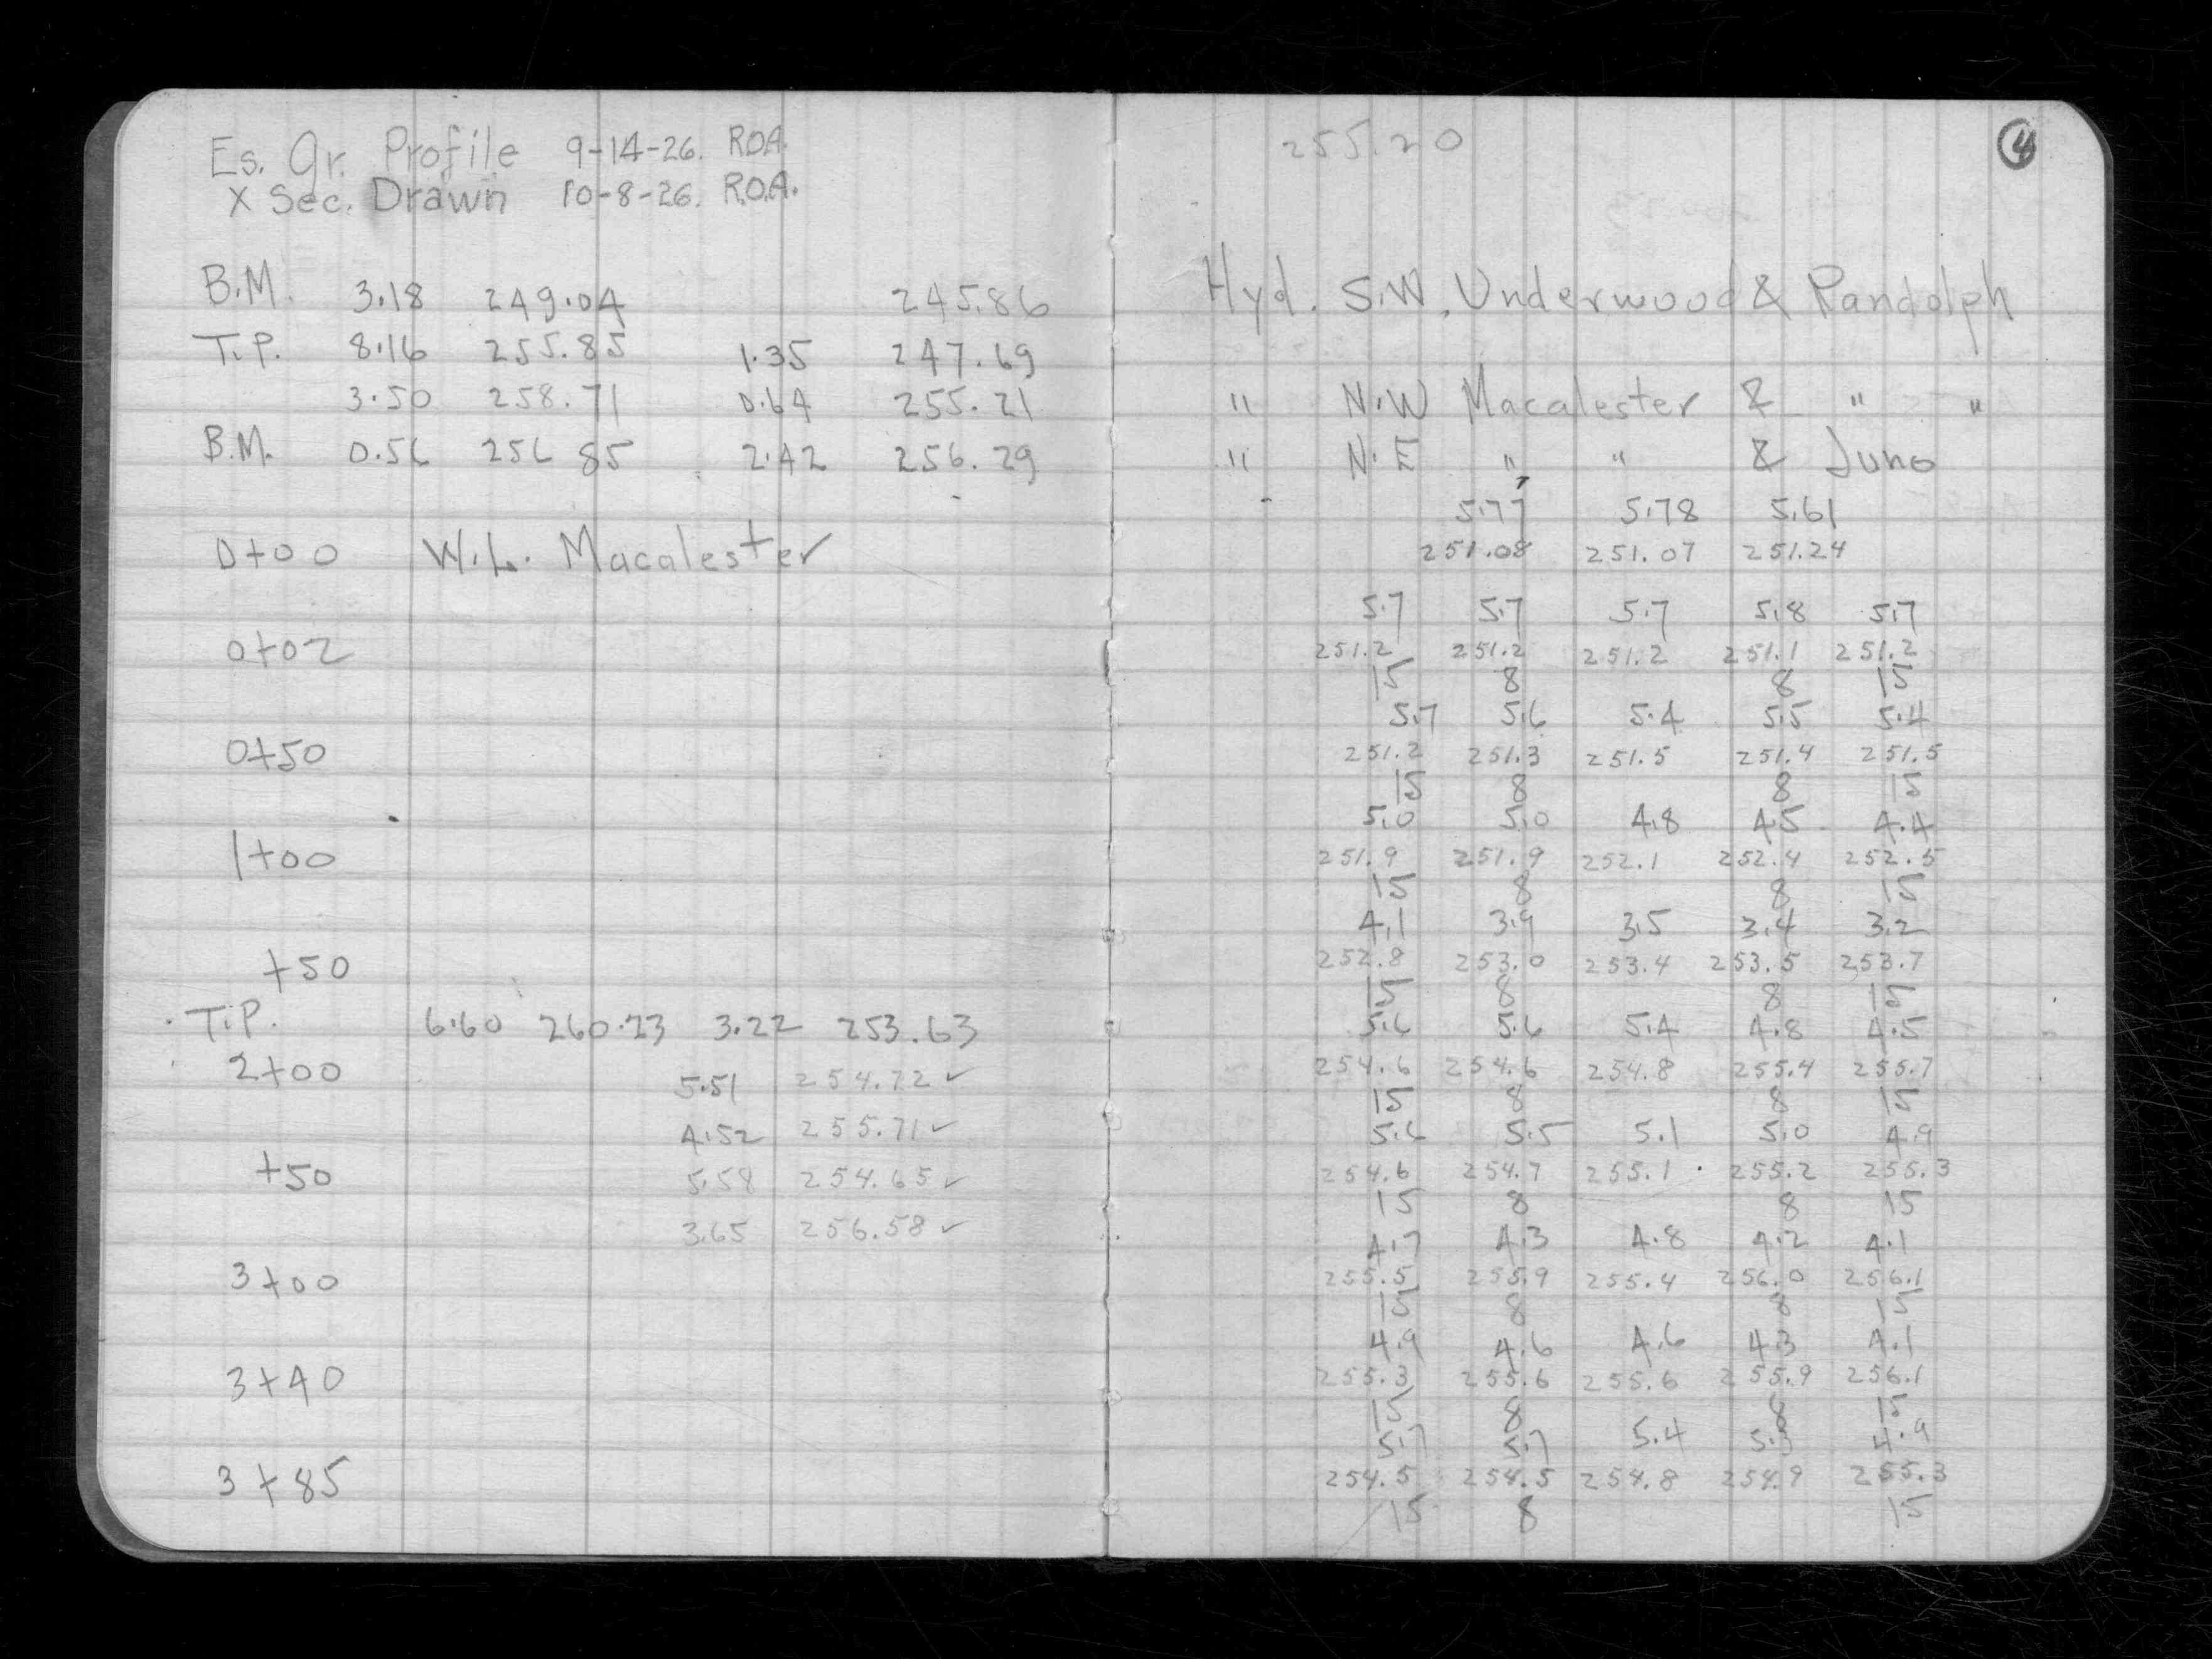 Es. Gr. Profile 9-14-26. R.O.A.
X Sec. Drawn 10-8-26. R.O.A.
B.M. 3.18 249.04 245.86
T.P. 8.16 255.85 1.35 247.69
3.50 258.71 0.64 255.21
B.M. 0.56 256 85 2.42 256.29
0+00 W.L. Macalester
0+02
0+50
1+00
+50
T.P. 6.60 260.23 3.22 253.63
2+00
5.51 254.72 ✓
4.52 255.71 ✓
+50
5.58 254.65 ✓
3.65 256.58 ✓
3+00
3+40
3+85
255.20
4
Hyd. S.W. Underwood & Randolph
" N.W Macalester & " "
" N.E " " & Juno
5.77 5.78 5.61
251.08 251.07 251.24
5.7 5.7 5.7 5.8 5.7
251.2 251.2 251.2 251.1 251.2
15 8 8 15
5.7 5.6 5.4 5.5 5.4
251.2 251.3 251.5 251.4 251.5
15 8 8 15
5.0 5.0 4.8 4.5 4.4
251.9 251.9 252.1 252.4 252.5
15 8 8 15
4.1 3.9 3.5 3.4 3.2
252.8 253.0 253.4 253.5 253.7
15 8 8 15
5.6 5.6 5.4 4.8 4.5
254.6 254.6 254.8 255.4 255.7
15 8 8 15
5.6 5.5 5.1 5.0 4.9
254.6 254.7 255.1 255.2 255.3
15 8 8 15
4.7 4.3 4.8 4.2 4.1
255.5 255.9 255.4 256.0 256.1
15 8 8 15
4.9 4.6 4.6 4.3 4.1
255.3 255.6 255.6 255.9 256.1
15 8 8 15
5.7 5.7 5.4 5.3 4.9
254.5 254.5 254.8 254.9 255.3
15 8 15